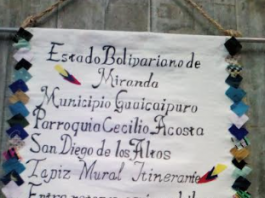 Estado Bolivariano de
Miranda
Municipio Guaicaipuro
Parroquia Cecilio Acosta
San Diego de los Altos
Tapiz Mural Itinerante
Entre